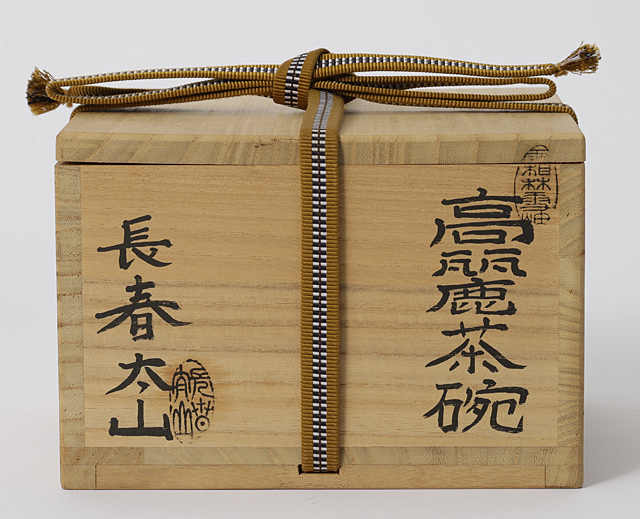 高麗茶碗
長春太山